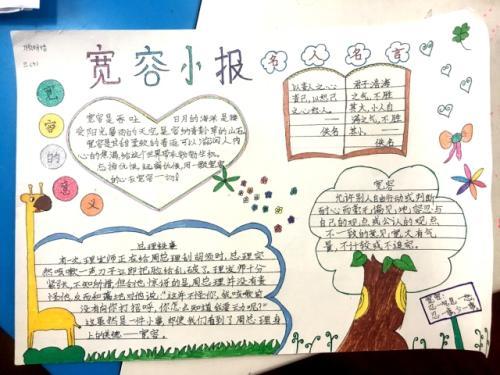 宽容小报
名人名言
宽容的意义
宽容是吞吐日月的海洋,是接
受阳光暴雨的天空,是容纳青翠草的山石,
宽容是
心的焦渴,给这个世界带来勃勃生机。
的心去宽容一切!
以责人之心
责己,以恕己
之心恕人。
——佚名
君子浩海
之气,不胜
其大,小人自
满之气,不胜
其小。
——佚名
宽容
允许别人自由行动或判断
耐心而毫无偏见地容忍与
自己的观点或公认的观点
不一致的意见,宽大有气
量,不计较或不追究。
总理轶事
有一次,理发师正在给周总理刮胡须时,总理突
然咳嗽一声,刀子立即把脸给刮破了。理发师十分
紧张,不知所措,但令他惊讶的是,周总理并没有责
怪他,反而和蔼地对他说:“这并不怪你,我咳嗽前
没有向你打招呼,你怎么知道我要动呢?”
这虽然是一件小事,却使我们看到了周总理身
上的美德——宽容。
宽容:
忍一时